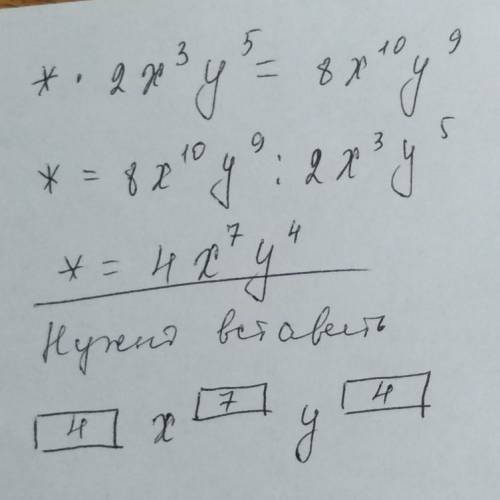 * · 2x³y⁵ = 8x¹⁰y⁹
* = 8x¹⁰y⁹ : 2x³y⁵
* = 4x⁷y⁴
Нужно вставить
4 x 7 y 4